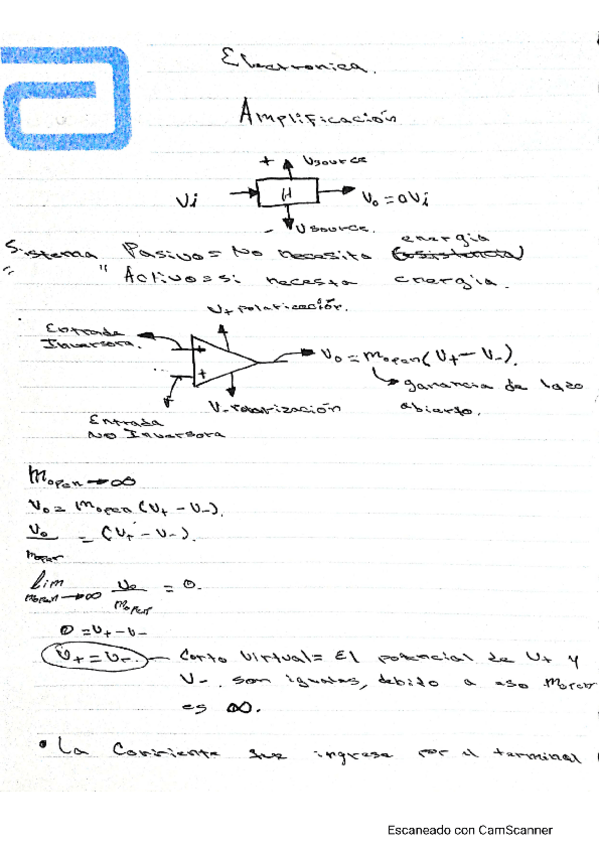 Electronica.
Amplificación
+ Vsource
Vi H Vo = aVi
- Vsource.
energia
Sistema Pasivo = No necesita
" " Activo = si necesita energia.
V+ polarización.
Entrada
Inversora.
Vo = Mopen (V+ - V-).
+ ganancia de lazo
V- polarización abierto.
Entrada
No Inversora
Mopen → ∞
Vo = Mopen (V+ - V-).
Vo = (V+ - V-).
Mopen
lim Vo = 0.
Mopen → ∞ Mopen
0 = V+ - V-
V+ = V-. — Corto Virtual = El potencial de V+ y
V- son iguales, debido a eso Mopen
es ∞.
• La Corriente que ingresa por el terminal
Escaneado con CamScanner